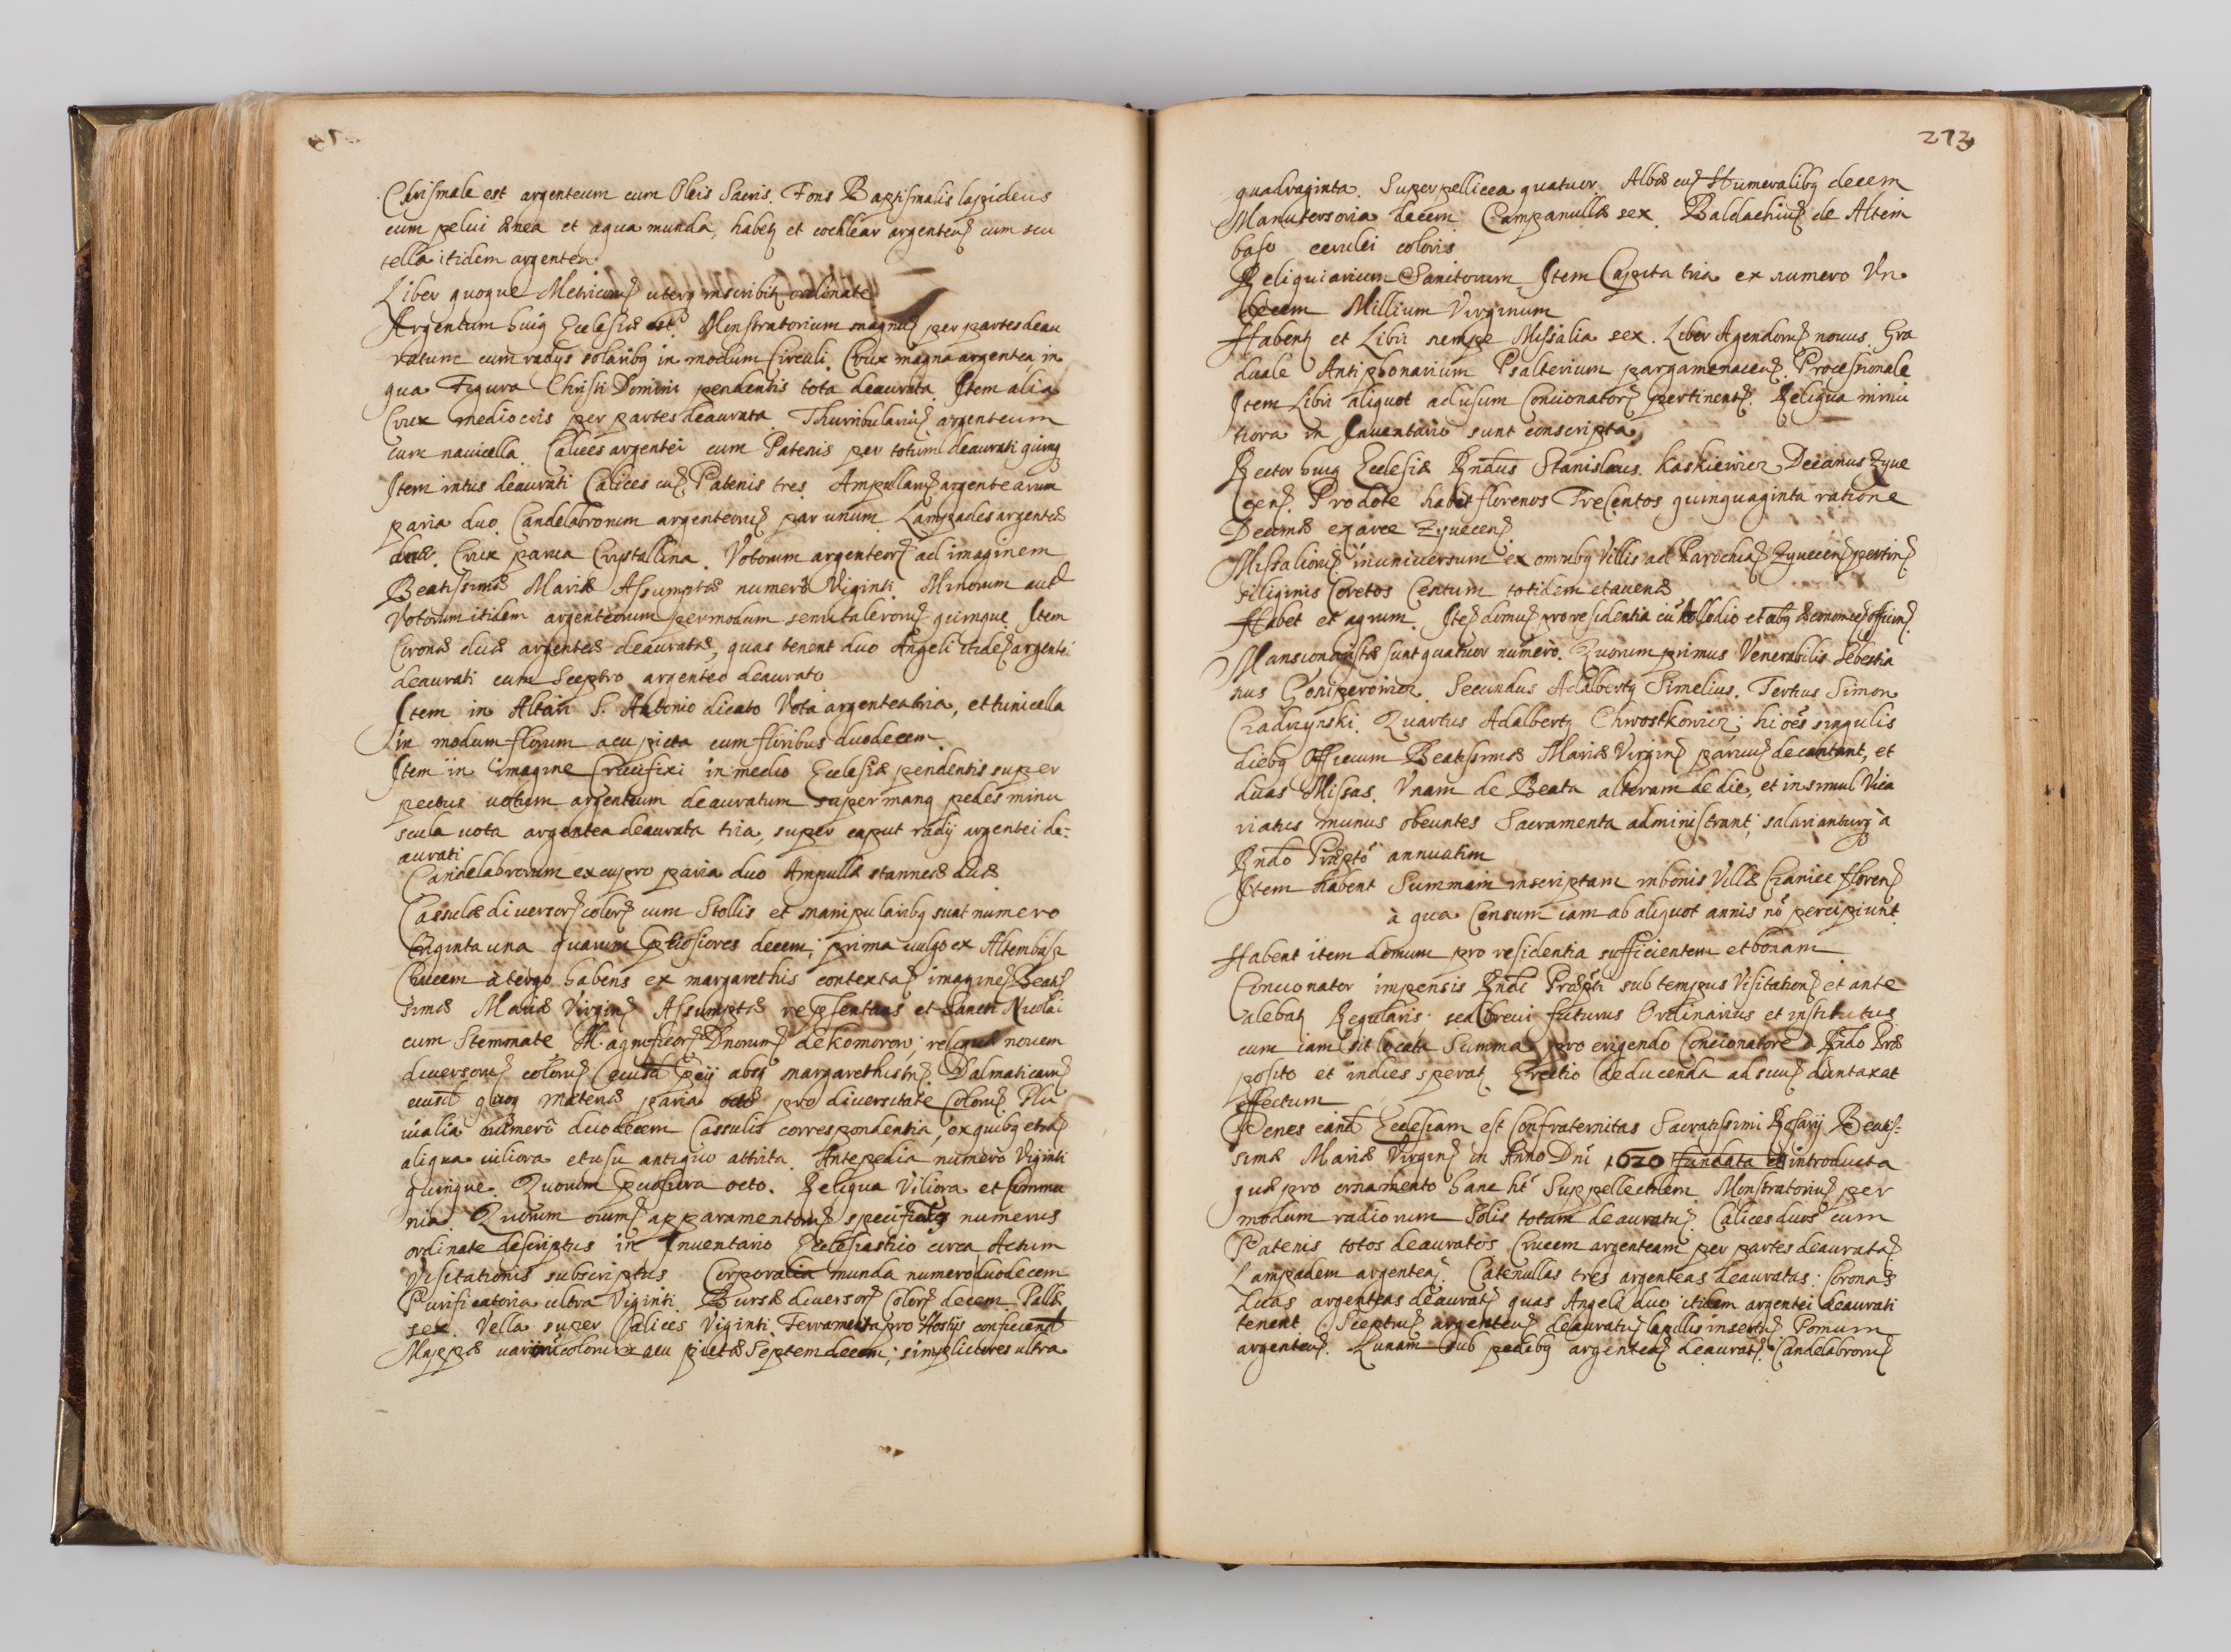 Chrismale est argenteum cum Oleis Sacris. Fons Baptismalis lapideus
cum pelui ænea et aqua munda, habetʒ et cochlear argenteuʒ cum scu
tella itidem argentea.
Liber quoque Metricoruʒ uterqʒ inscribitʒ ordinate
Argentum huiqʒ Ecclesiæ est. Monstratorium magnuʒ per partes deau
ratum cum radys solaribqʒ in modum Circuli. Crux magna argentea, in
qua Figura Christi Domini pendentis tota deaurata. Item alia
Crux mediocris per partes deaurata. Thuribulariuʒ argenteum
cum nauicella. Calices argentei cum Patenis per totum deaurati quinqʒ
Item intus deaurati Calices cuʒ Patenis tres. Ampullaruʒ argentearum
paria duo. Candelabrorum argenteoruʒ par unum. Lampades argenteæ
duæ. Crux parua Cristallina. Votorum argenteorʒ ad imaginem
Beatissimæ Mariæ Assumptæ numerò Viginti. Minorum autʒ
Votorum itidem argenteorum per modum semitaleroruʒ quinque. Item
Coronæ duæ argenteæ deauratæ, quas tenent duo Angeli itideʒ argentei
deaurati cum Sceptro argenteo deaurato
Item in Altari S. Antonio dicato Vota argentea tria, et tunicella
in modum florum acu picta cum floribus duodecem.
Item in imagine Crucifixi in medio Ecclesiæ pendentis super
pectus uotum argenteum deauratum super manqʒ pedes minu
scula uota argentea deaurata tria, super caput radij argentei de=
aurati
Candelabrorum ex cupro paria duo Ampullæ stanneæ duæ
Casulæ diuersorʒ colorʒ cum Stollis et manipularibqʒ sunt numero
triginta una quarum ptiosiores decem; prima uulgo ex Altembasz
Crucem à tergo habens ex margarethis contextaʒ imagineʒ Beatʒ
simæ Mariæ Virginʒ Assumptæ repsentans et Sancti Nicolai
cum Stemmate M.agnificorʒ Dnorumʒ de Komorow; reliquæ nouem
diuersoruʒ coloruʒ eiusd pcij absqʒ margarethis tnʒ. Dalmaticaruʒ
eiusd quoqʒ materiæ paria octo pro diuersitate Coloruʒ. Plu
uialia numerò duodecem Casulis correspondentia, ex quibqʒ etiaʒ
aliqua uiliora et usu antiquo attrita. Antepedia numerò Viginti
quinque. Quorum ptiosiora octo. Reliqua Viliora et commu
nia. Quorum oiumʒ apparamentoruʒ specificatqʒ numerus
ordinate descriptus in Inuentario Ecclesiastico circa Actum
Visitationis subscriptus. Corporalia munda numero duodecem
Purificatoria ultra Viginti. Bursæ diuersorʒ Colorʒ decem. Pallæ
sex. Vella super Calices Viginti. Ferramenta pro Hostijs conficiend
Mappæ uariorū colorum acu pictæ Septemdecem; simpliciores ultra
273
quadraginta. Superpellicea quatuor. Albæ cuʒ Humeralibqʒ decem
Manutersoria decem. Campanullæ sex. Baldachinuʒ de Altem
base cerulei coloris
Reliquiarium Sanctorum. Item Capita tria ex numero Vn
decem Millium Virginum
Habentʒ et Libri nempe Missalia sex. Liber Agendoruʒ nouus. Gra
duale Antiphonarium Psalterium pargamenaceuʒ. Processionale
Item Libri aliquot ad usum Concionatorʒ pertinentʒ. Reliqua minu
tiora in Inuentario sunt conscripta
Rector huiqʒ Ecclesiæ Rndus Stanislaus Kaskiewicz Decanus Zyue
cenʒ. Pro dote habet florenos Trecentos quinquaginta ratione
Decimæ ex arce Zyuecenʒ
Missalioruʒ in uniuersum ex omnibqʒ Villis ad Parochiaʒ Zyuecenʒ pertinʒ
siliginis Coretos Centum totidem et auenæ
Habet et agrum. Iteʒ domuʒ pro residentia cū Allodio et alijs œconomicʒ officinʒ.
Mansionaristæ sunt quatuor numerò. Quorum primus Venerabilis Sebestia
nus Secundus Adalbertqʒ Simelius. Tertius Simon
Czadrzynski. Quartus Adalbertqʒ Chwostkowicz; hi oēs singulis
diebqʒ Officium Beatissimæ Mariæ Virginʒ paruuʒ decantant, et
duas Missas. Vnam de Beata alteram de die, et in simul Vica
riatus munus obeuntes Sacramenta administrant; salariantur qʒ à
Rndo Præpto annuatim
Item habent Summam inscriptam in bonis Villæ Czaniec florenʒ
à qua Censum iam ab aliquot annis nō percipiunt
Habent item domum pro residentia sufficientem et bonam
Concionator impensis Rndi Præpti sub tempus Visitationʒ et ante
alebatʒ Regularis: sed breui futurus Ordinarius et institutus
cum iam sit locata Summa pro erigendo Concionatore à Rndo Præ
posito et indies speratʒ Erectio deducenda ad suuʒ duntaxat
effectum
Penes eand Ecclesiam est Confraternitas Sacratissimi Rosarij Beatis=
simæ Mariæ Virginʒ in Anno Dni 1620 fundata et introducta
quæ pro ornamento hanc ht Suppellectilem. Monstratoriuʒ per
modum radiorum Solis totam deauratuʒ. Calices duos cum
Patenis totos deauratos. Crucem argenteam per partes deaurataʒ
Lampadem argenteaʒ. Catenullas tres argenteas deauratas: Coronas
duas argenteas deauratʒ quas Angeli duo itidem argentei deaurati
tenent. Sceptruʒ argenteuʒ deauratuʒ lapillis insertuʒ Pomum
argenteuʒ. Lunam sub pedibqʒ argenteaʒ deauratʒ. Candelabroruʒ